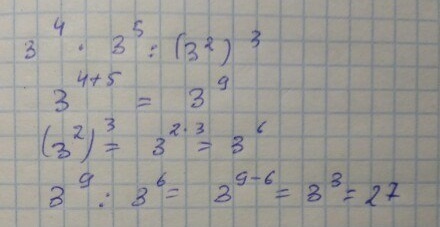 3⁴ · 3⁵ : (3²)³
3⁴⁺⁵ = 3⁹
(3²)³ = 3²·³ = 3⁶
3⁹ : 3⁶ = 3⁹⁻⁶ = 3³ = 27